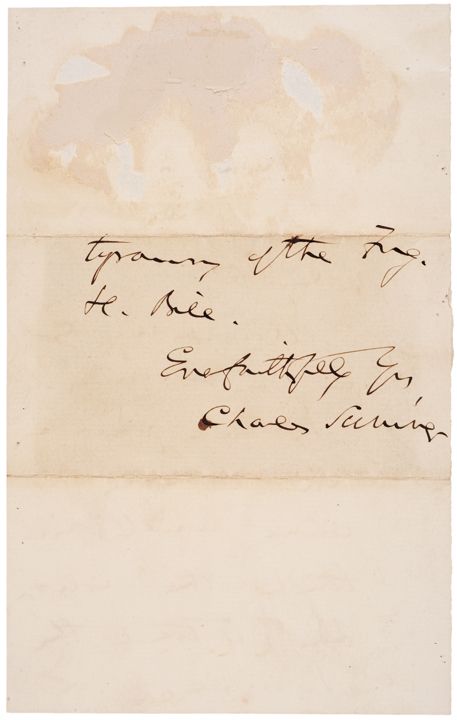 tyranny of the Fug.
Sl. Bill.
Ever faithfully Yrs,
Charles Sumner